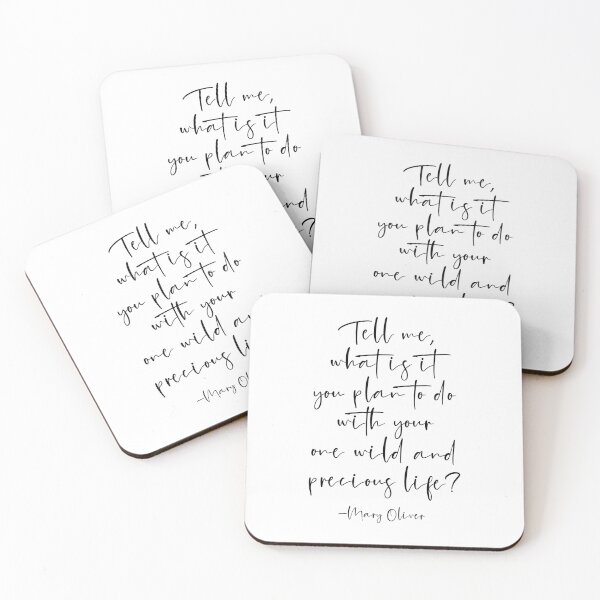 Tell me,
what is it
you plan to do
your
?
Tell me,
what is it
you plan to do
with your
one wild and
Tell me,
what is it
you plan to do
with your
one wild
precious life?
-Mary
Tell me,
what is it
you plan to do
with your
one wild and
precious life?
-Mary Oliver